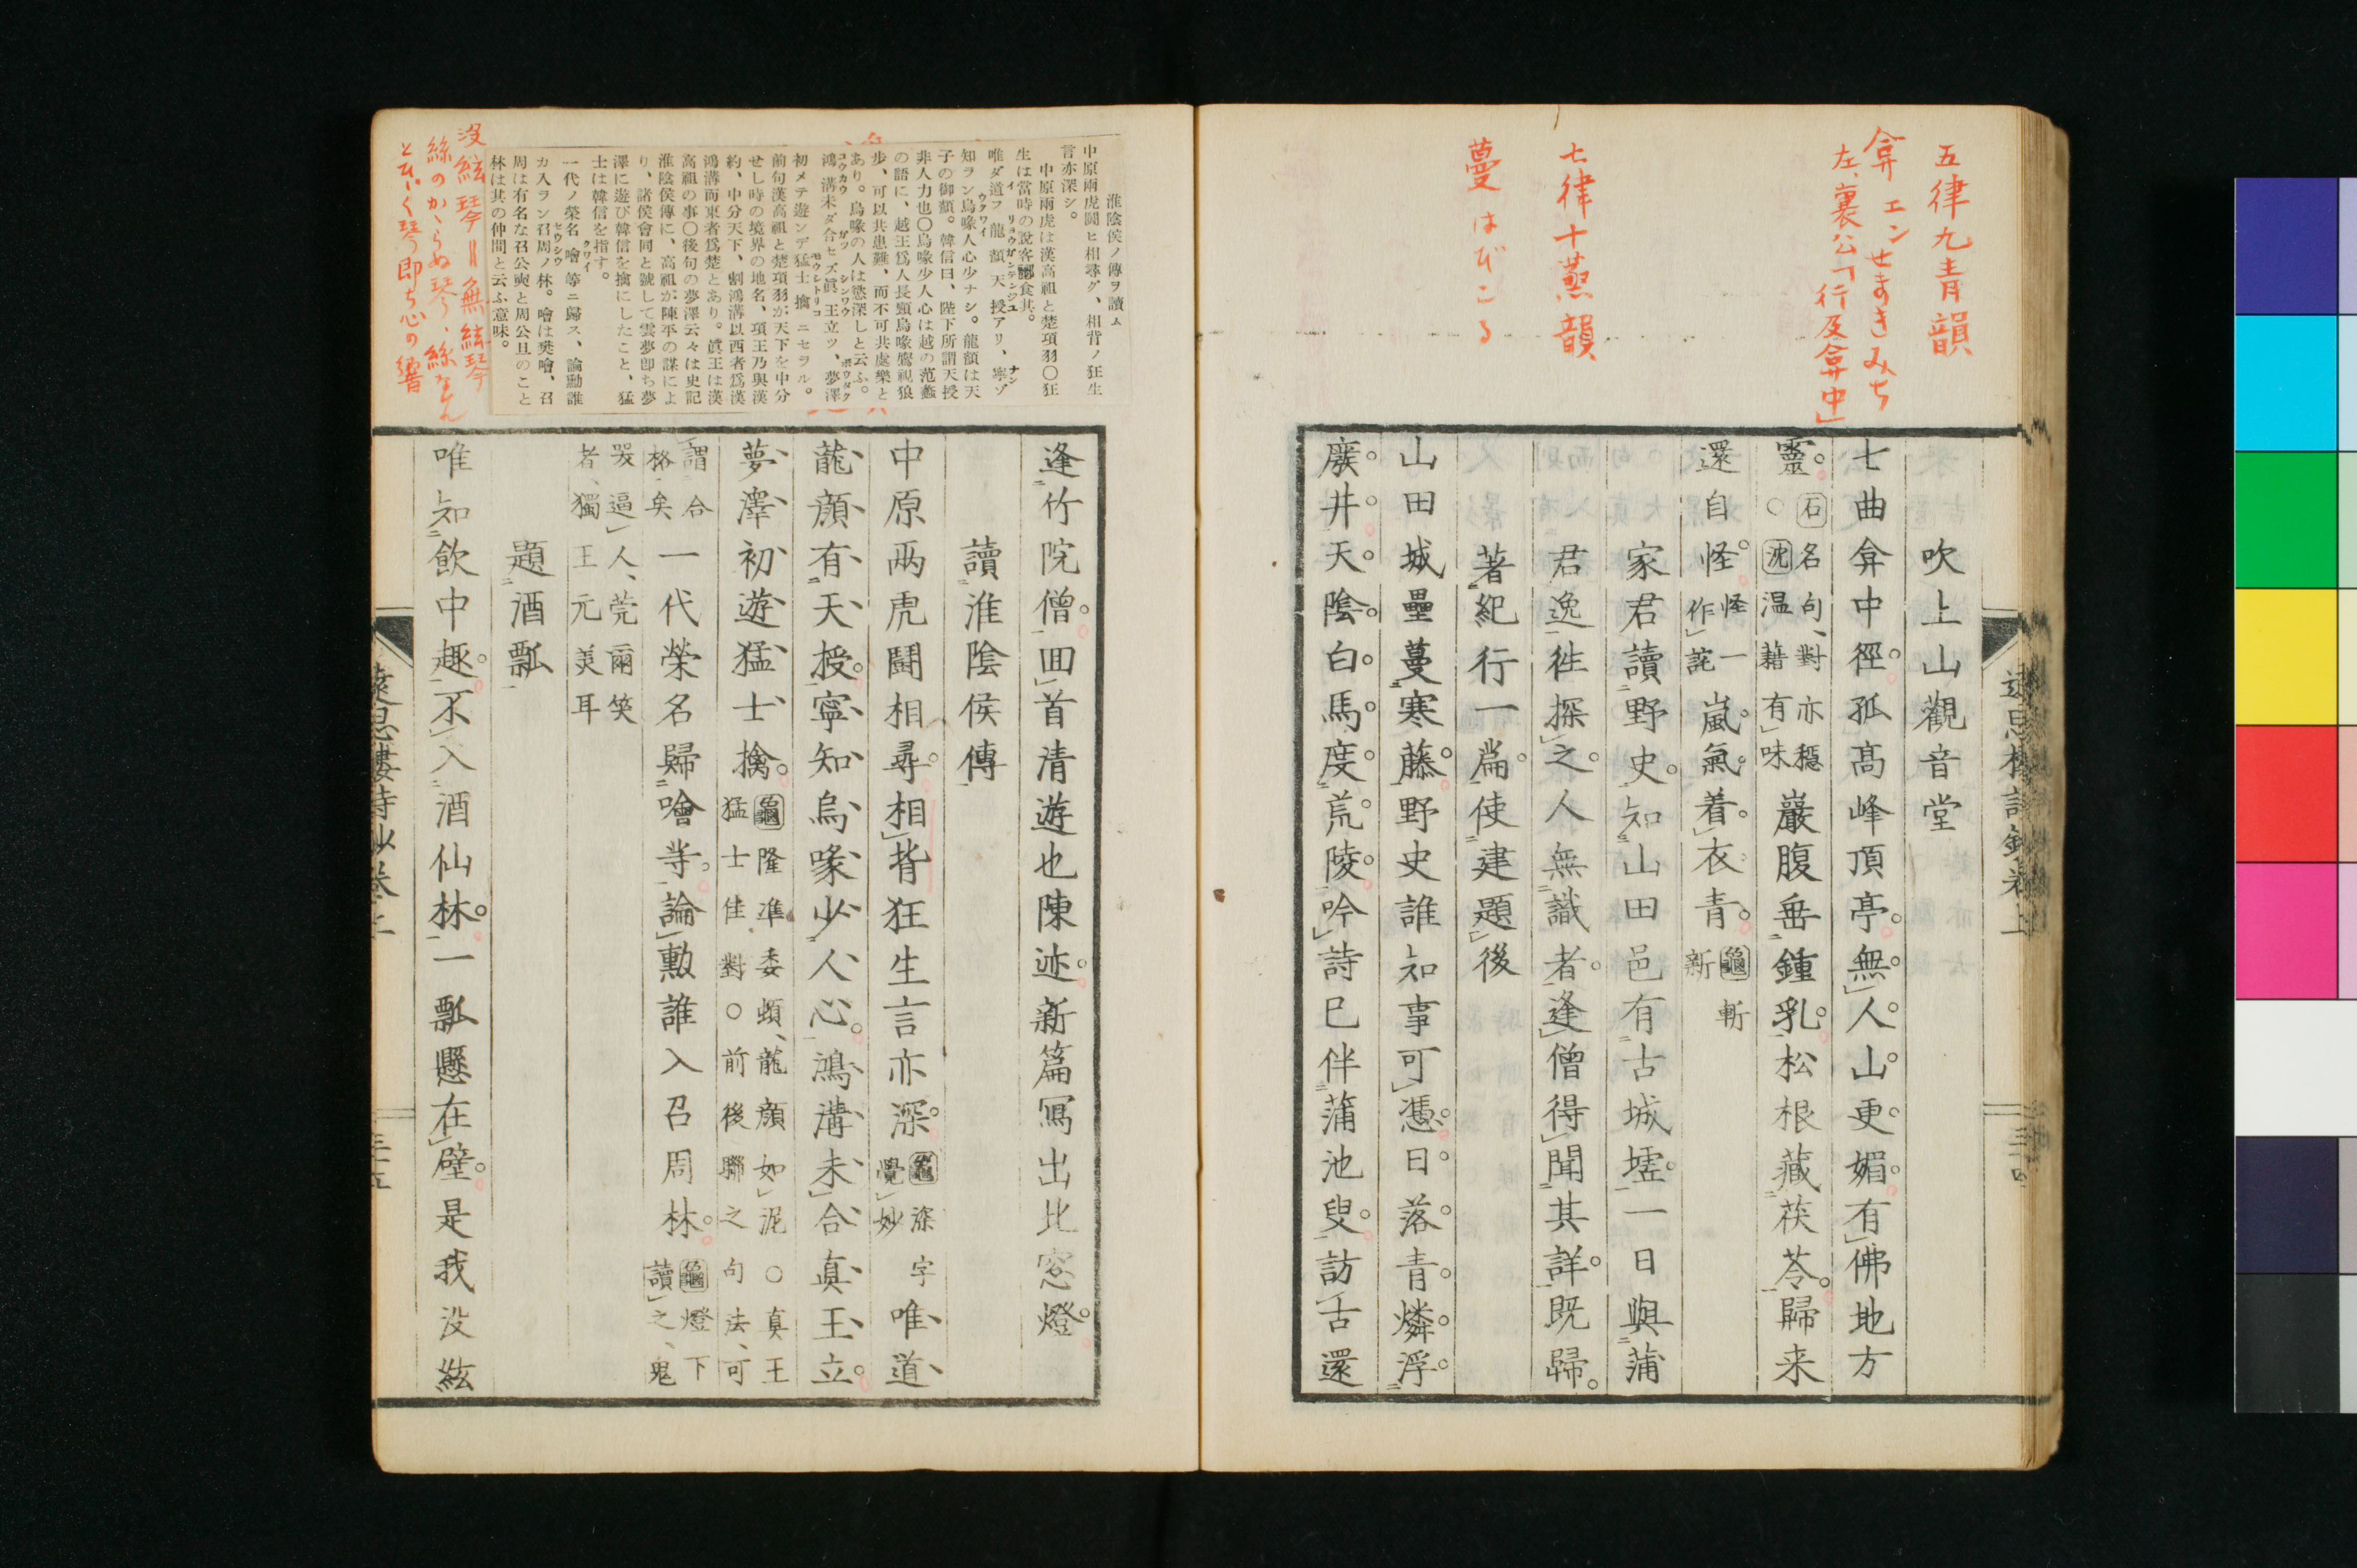 五律九青韻
弇 エン せまきみち
左、裏公「行及弇中」
七律十蒸韻
蔓 はびこる
遠思楼詩鈔卷上
吹上山觀音堂
七曲弇中徑孤高峰頂亭無人山更媚有佛地方
靈 石名句、對亦穩 ○沈温藉有味 巖腹垂鍾乳松根藏茯苓歸来
還自怪 怪一作詫 嵐氣着衣青 龜斬新
家君讀野史知山田邑有古城墟一日與蒲
君逸徃探之人無識者逢僧得聞其詳既歸
著紀行一篇使建題後
山田城壘蔓寒藤野史誰知事可憑日落青燐浮
廢井天陰白馬度荒陵吟詩已伴蒲池叟訪古還
淮陰侯ノ傳ヲ讀ム
中原兩虎鬪ヒ相尋グ、相背ノ狂生
言亦深シ。
中原兩虎は漢高祖と楚項羽○狂
生は當時の說客酈食其。
唯ダ道フ龍顏天授アリ、寧ゾ
知ラン烏喙人心少ナシ。龍額は天
子の御額。韓信曰、陛下所謂天授
非人力也○烏喙少人心は越の范蠡
の語に、越王爲人長頸烏喙鷹視狼
步、可以共患難、而不可共處樂と
あり。烏喙の人は慾深しと云ふ。
鴻溝未ダ合セズ眞王立ツ、夢澤
初メテ遊ンデ猛士擒ニセラル。
前句漢高祖と楚項羽が天下を中分
せし時の境界の地名、項王乃與漢
約、中分天下、割鴻溝以西者爲漢
鴻溝而東者爲楚とあり。眞王は漢
高祖の事○後句の夢澤云々は史記
淮陰侯傳に、高祖が陳平の謀によ
り、諸侯會同と號して雲夢卽ち夢
澤に遊び韓信を擒にしたこと、猛
士は韓信を指す。
一代ノ榮名噲等ニ歸ス、論勳誰
カ入ラン召周ノ林。噲は樊噲、召
周は有名な召公奭と周公旦のこと
林は其の仲間と云ふ意味。
没絃琴＝無絃琴
絲のかゝらぬ琴、絲なくん
とひく琴即ち心の響
逢竹院僧囬首清遊也陳迹新篇冩出比窓燈
讀淮陰侯傳
中原兩虎鬪相尋相背狂生言亦深 龜深字覺妙 唯道
龍顏有天授寧知烏喙少人心鴻溝未合真王立
夢澤初遊猛士擒 龜隆準委頓、龍顏如泥○真王猛士佳對○前後聯之句法、可
謂合格矣 一代榮名歸噲等論勳誰入召周林 龜燈下讀之、鬼
哭逼人、莞爾笑者、獨王元美耳
題酒瓢
唯知飲中趣不入酒仙林一瓢懸在壁是我没絃
遠思樓詩鈔卷上